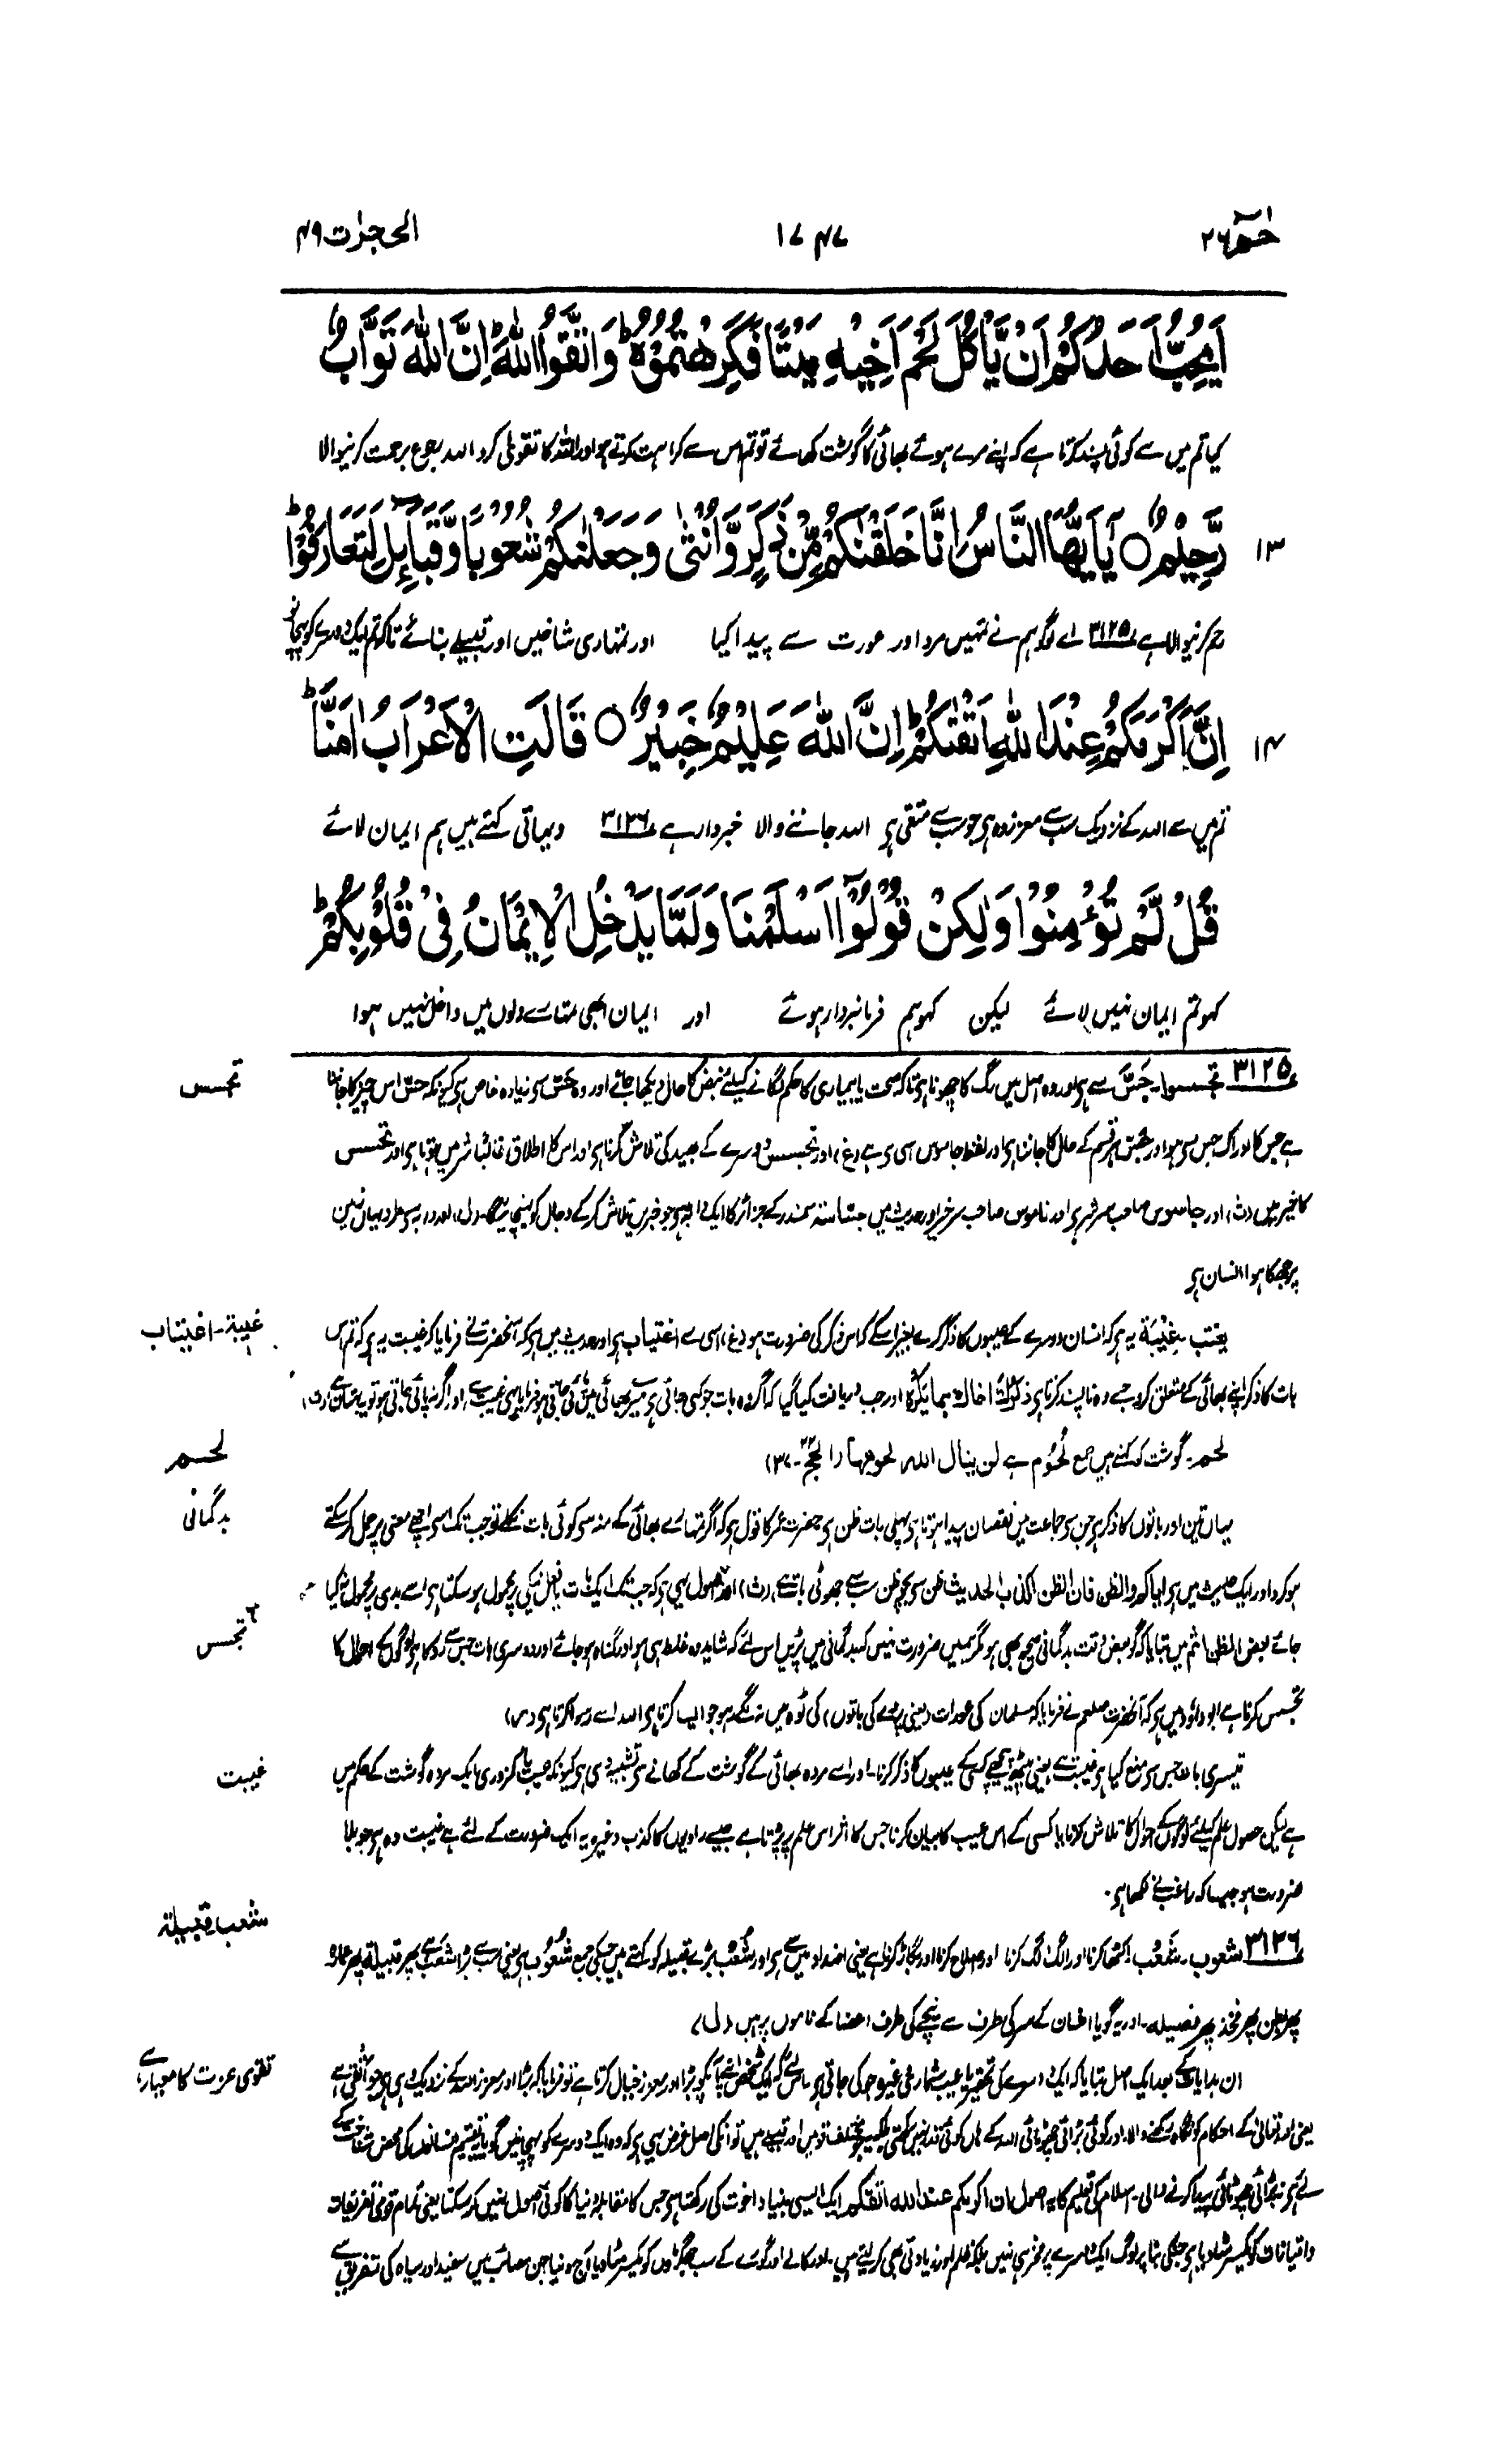 حٰمٓ ٢٦
١٧٤٧
الحجرٰت ٤٩
اَيُحِبُّ اَحَدُكُمْ اَنْ يَّاْكُلَ لَحْمَ اَخِيْهِ مَيْتًا فَكَرِهْتُمُوْهُ ؕ وَاتَّقُوا اللّٰهَ ؕ اِنَّ اللّٰهَ تَوَّابٌ
کیا تم میں سے کوئی پسند کرتا ہے کہ اپنے مرے ہوئے بھائی کا گوشت کھائے تو تم اس سے کراہت کرتے ہو اور اللہ کا تقویٰ کرو اللہ رجوع برحمت کرنیوالا
رَّحِيْمٌ ○ يٰۤاَيُّهَا النَّاسُ اِنَّا خَلَقْنٰكُمْ مِّنْ ذَكَرٍ وَّاُنْثٰى وَجَعَلْنٰكُمْ شُعُوْبًا وَّقَبَآئِلَ لِتَعَارَفُوْا ؕ
١٣
رحم کرنیوالا ہے ۳۱۲۵ اے لوگو ہم نے تمہیں مرد اور عورت سے پیدا کیا اور تمہاری شاخیں اور قبیلے بنائے تاکہ تم ایک دوسرے کو پہچانو
اِنَّ اَكْرَمَكُمْ عِنْدَ اللّٰهِ اَتْقٰىكُمْ ؕ اِنَّ اللّٰهَ عَلِيْمٌ خَبِيْرٌ ○ قَالَتِ الْاَعْرَابُ اٰمَنَّا ؕ
١٤
تم میں سے اللہ کے نزدیک سب سے معزز وہ ہی جو سب سے متقی ہی اللہ جاننے والا خبردار ہے ۳۱۲۶ دیہاتی کہتے ہیں ہم ایمان لائے
قُلْ لَّمْ تُؤْمِنُوْا وَلٰكِنْ قُوْلُوْۤا اَسْلَمْنَا وَلَمَّا يَدْخُلِ الْاِيْمَانُ فِيْ قُلُوْبِكُمْ ؕ
کہو تم ایمان نہیں لائے لیکن کہو ہم فرمانبردار ہوئے اور ایمان ابھی تمہارے دلوں میں داخل نہیں ہوا
تجسس
۳۱۲۵ تجسسوا۔ جَسّ سے ہی اور وہ اصل میں رگ کا چھونا ہی تاکہ صحت یا بیماری کا حکم لگانے کیلئے نبض کا حال دیکھا جائے اور وہ حسّ سی زیادہ خاص ہی کیونکہ حسّ اس چیز کا جاننا
ہے جس کا ادراک حس سی ہو اور جسّ ہر قسم کے حال کا جاننا ہی اور لفظ جاسوس اسی سی ہے (غ) اور تجسس دوسرے کے بھید کی تلاش کرنا ہی اور اس کا اطلاق غالباً شر میں ہوتا ہی اور تحسس
کا خیر میں (ث) اور جاسوس صاحب سرّ شر ہی اور ناموس صاحب سرّ خیر اور حدیث میں جسّاسۃ سمندر کے جزائر کا ایک دابہ ہی جو خبریں تلاش کر کے دجال کو پہنچائیگا (ل) اور دابہ سی مراد یہاں زمین
پر جھکا ہوا انسان ہی
غیبۃ۔ اغتیاب
یغتب۔ غِیْبَة یہ ہی کہ انسان دوسرے کے عیبوں کا ذکر کرے بغیر اسکے کہ اس ذکر کی ضرورت ہو (غ) اسی سے اغتیاب ہی اور حدیث میں ہی کہ آنحضرت نے فرمایا کہ غیبت یہ ہی کہ تم اس
بات کا ذکر اپنے بھائی کے متعلق کرو جسے وہ ناپسند کرتا ہی ذکرك اخاك بما يكره اور جب دریافت کیا گیا کہ اگر وہ بات جو کہی جاتی ہی میرے بھائی میں پائی جاتی ہو فرمایا یہی غیبت ہے اور اگر نہ پائی جاتی ہو تو یہ بہتان ہے (ث)
لحم
لحم۔ گوشت کو کہتے ہیں جمع لُحُوم ہے لن ینال اللہ لحومھا (الحج ۲۲۔ ۳۷)
بدگمانی
یہاں تین اور باتوں کا ذکر ہی جن سی جماعت میں نقصان پیدا ہوتا ہی پہلی بات ظن ہی حضرت عمر کا قول ہی کہ اگر تمہارے بھائی کے منہ سی کوئی بات نکلے تو جب تک اسے اچھے معنی پر حمل کر سکتے
ہو کرو اور ایک حدیث میں ہی ایاکم والظن فان الظن اکذب الحدیث ظن سی بچو ظن سب سے جھوٹی بات ہے (ث) اور اصول یہی ہی کہ جب تک ایک بات یا فعل نیکی پر محمول ہو سکتا ہی اسے بدی پر محمول نہ کیا
تجسس
جائے بعض الظن اثم میں بتایا کہ گو بعض وقت بدگمانی صحیح بھی ہو مگر تمہیں ضرورت نہیں کہ بدگمانی میں پڑیں اس لئے کہ شاید وہ غلط ہی ہو اور گناہ ہو جائے اور دوسری بات جس سے روکا ہی لوگوں کے احوال کا
تجسس کرنا ہے ابو داؤد میں ہی کہ آنحضرت صلعم نے فرمایا کہ مسلمان کی عورات (یعنی پردے کی باتوں) کی ٹوہ میں نہ لگے رہو جو ایسا کرتا ہی اللہ اسے رسوا کرتا ہی
غیبت
تیسری بات جس سی منع کیا ہی غیبت ہے یعنی پیٹھ پیچھے کسی کے عیبوں کا ذکر کرنا۔ اور اسے مردہ بھائی کے گوشت کے کھانے سی تشبیہ دی ہی کیونکہ عیب یا کمزوری ایک مردہ گوشت کے حکم میں
ہے لیکن حصول علم کیلئے لوگوں کے احوال کا تلاش کرنا یا کسی کے اس عیب کا بیان کرنا جس کا اثر اس علم پر پڑتا ہے جیسے راویوں کا کذب وغیرہ یہ ایک ضرورت کے لئے ہے غیبت وہ ہی جو بلا
ضرورت ہو جیسا کہ راغب نے لکھا ہی۔
شعب قبیلۃ
۳۱۲۶ شعوب۔ شَعْب۔ اکٹھا کرنا اور الگ الگ کرنا اور اصلاح کرنا اور بگاڑ کرنا ہے یعنی اضداد میں سے ہی اور شَعْب بڑے قبیلہ کو کہتے ہیں جسکی جمع شُعُوب ہی یعنی سب سے بڑا شعب ہے پھر قبیلۃ پھر عمارۃ
پھر بطن پھر فخذ پھر فصیلہ۔ اور یہ گویا انسان کے سر کی طرف سے نیچے کی طرف اعضا کے ناموں پر ہیں (ل)
تقویٰ عزت کا معیار ہے
ان ہدایات کے بعد ایک اصل بتایا کہ ایک دوسرے کی تحقیر یا عیب شماری غیرہ جو کی جاتی ہی اس لئے کہ ایک شخص اپنے آپ کو بڑا اور معزز خیال کرتا ہے تو فرمایا کہ بڑا اور معزز اللہ کے نزدیک وہی ہی جو متقی ہے
یعنی اللہ تعالیٰ کے احکام کو نگاہ رکھنے والا اور کوئی بڑائی چھوٹائی اللہ کے ہاں کوئی قدر نہیں رکھتی مختلف قومیں اور قبیلے ہیں تو انکی اصل غرض یہی ہی کہ وہ ایک دوسرے کو پہچانیں گویا یہ تقسیم انسانوں کی محض شناخت کے
لئے ہی نہ بڑائی چھوٹائی پیدا کرنے والی۔ اسلام کی تعلیم کا یہ اصول ان اکرمکم عند اللہ اتقٰکم ایک ایسی بنیاد اخوت کی رکھتا ہی جس کا مقابلہ دنیا کا کوئی اصول نہیں کر سکتا یعنی تمام قومی تفریقات
وامتیازات کو یکسر مٹا دیا ہی جنکی بنا پر لوگ ایک دوسرے پر فخر ہی نہیں بلکہ ظلم اور زیادتی بھی کر لیتے ہیں۔ اور کالے اور گورے کے سب جھگڑوں کو یکسر مٹا دیا آج دنیا جن مصائب میں سفید اور سیاہ کی تفریق سے